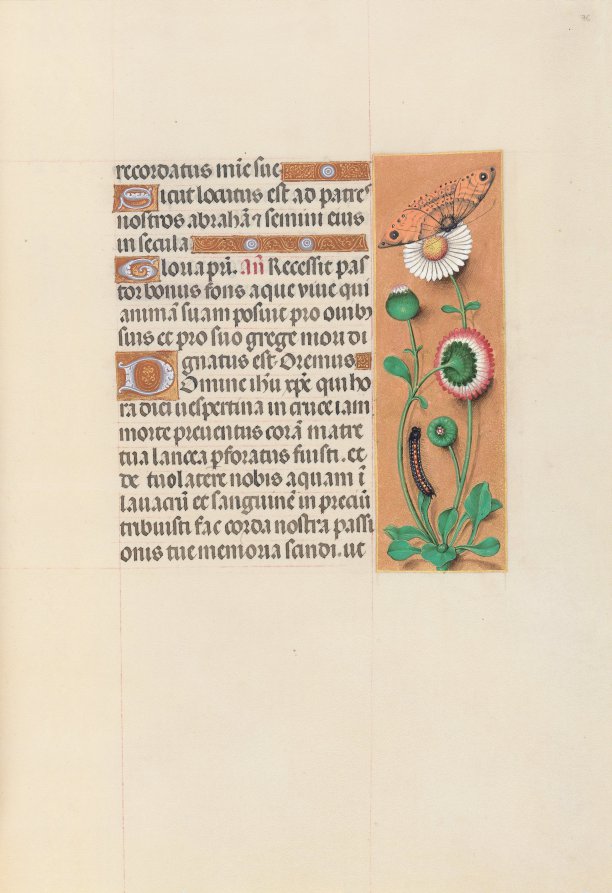 76
recordatus mīe sue
Sicut locutus est ad patreˢ
nostros abrahā ⁊ semini eius
in secula
Gloria pri̅. An̄ Recessit pas
tor bonus fons aque viue qui
animā suam posuit pro ouibꝫ
suis et pro suo grege mori di
gnatus est. Oremus
Domine ihu xp̄e qui ho
ra diei uespertina in cruce iam
morte preuentus corā matre
tua lancea pforatus fuisti. et
de tuo latere nobis aquam ī
lauacrū et sanguinē in preciū
tribuisti fac corda nostra passi
onis tue memoria scindi. ut